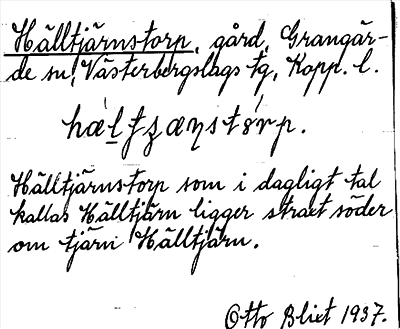 Hälltjärnstorp, gård, Grangär-
de sn, Västerbergslags tg, Kopp. l.
Hälltjärnstorp som i dagligt tal
kallas Hälltjärn ligger strax söder
om tjärn Hälltjärn.
Otto Blixt 1937.